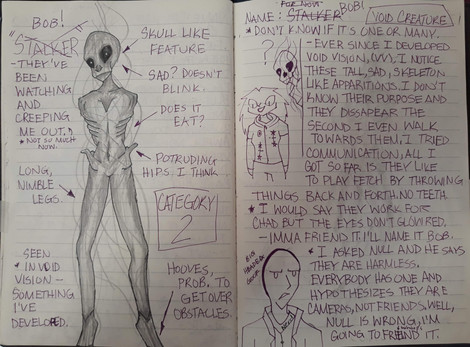 BOB!
"STALKER
- THEY'VE
BEEN
WATCHING
AND
CREEPING
ME OUT."
*NOT SO MUCH
NOW.
LONG,
NIMBLE
LEGS.
SEEN
* IN VOID
VISION -
SOMETHING
I'VE
DEVELOPED.
SKULL LIKE
FEATURE
SAD? DOESN'T
BLINK.
DOES IT
EAT?
POTRUDING
HIPS. I THINK
CATEGORY
2
HOOVES,
PROB. TO
GET OVER
OBSTACLES.
FOR NOW:
NAME: STALKER BOB!
VOID CREATURE
* DON'T KNOW IF IT'S ONE OR MANY.
?
- EVER SINCE I DEVELOPED
VOID VISION, (VV), I NOTICE
THESE TALL, SAD, SKELETON
LIKE APPARITIONS. I DON'T
KNOW THEIR PURPOSE AND
THEY DISSAPEAR THE
SECOND I EVEN WALK
TOWARDS THEM. I TRIED
COMMUNICATION, ALL I
GOT SO FAR IS THEY LIKE
TO PLAY FETCH BY THROWING
THINGS BACK AND FORTH. NO TEETH.
* I WOULD SAY THEY WORK FOR
CHAD BUT THE EYES DON'T GLOW RED.
- IMMA FRIEND IT. I'LL NAME IT BOB.
* I ASKED NULL AND HE SAYS
THEY ARE HARMLESS.
EVERYBODY HAS ONE AND
HYPOTHESIZES THEY ARE
CAMERAS, NOT FRIENDS. WELL,
NULL IS WRONG, I'M
GOING TO FRIEND IT.